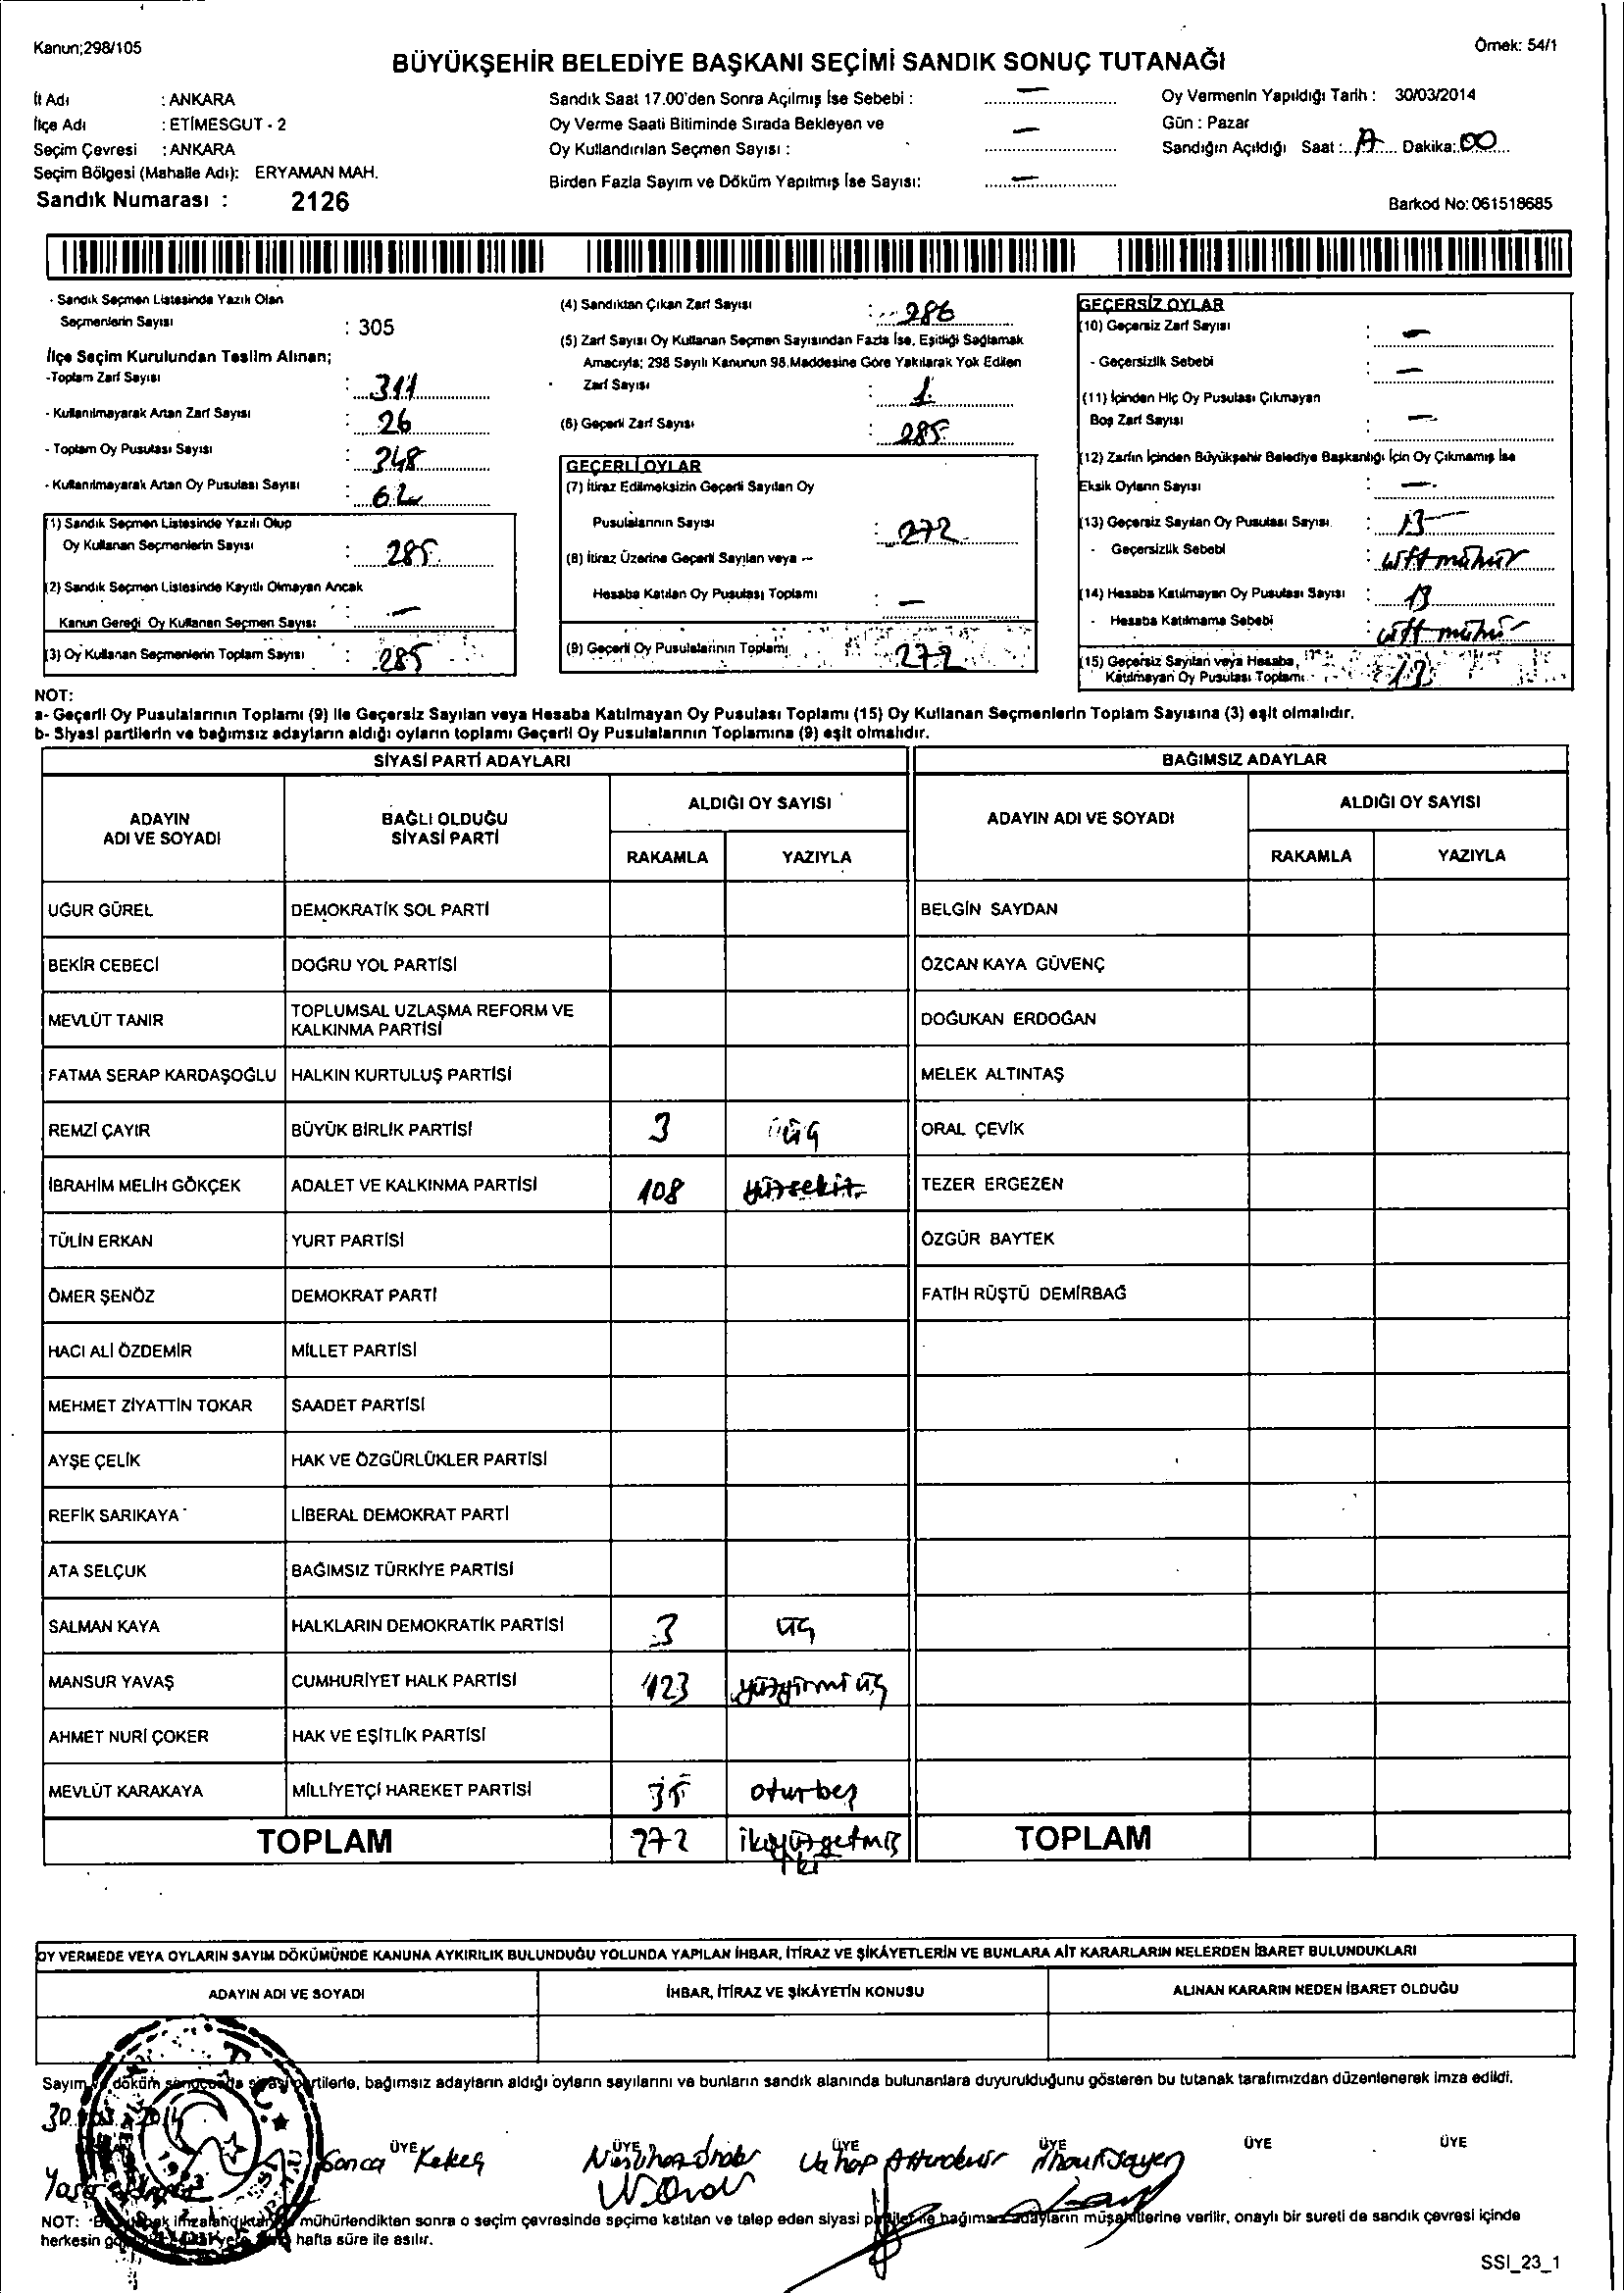 Kanun;298/105
Örnek: 54/1
BÜYÜKŞEHİR BELEDİYE BAŞKANI SEÇİMİ SANDIK SONUÇ TUTANAĞI
İl Adı : ANKARA
İlçe Adı : ETİMESGUT - 2
Seçim Çevresi : ANKARA
Seçim Bölgesi (Mahalle Adı): ERYAMAN MAH.
Sandık Numarası : 2126
Sandık Saat 17.00'den Sonra Açılmış İse Sebebi : —
Oy Verme Saati Bitiminde Sırada Bekleyen ve
Oy Kullandırılan Seçmen Sayısı : —
Birden Fazla Sayım ve Döküm Yapılmış İse Sayısı: —
Oy Vermenin Yapıldığı Tarih : 30/03/2014
Gün : Pazar
Sandığın Açıldığı Saat : Dakika: 00
Barkod No: 061518685
- Sandık Seçmen Listesinde Yazılı Olan
Seçmenlerin Sayısı : 305
İlçe Seçim Kurulundan Teslim Alınan;
-Toplam Zarf Sayısı : 311
- Kullanılmayarak Artan Zarf Sayısı : 26
- Toplam Oy Pusulası Sayısı : 348
- Kullanılmayarak Artan Oy Pusulası Sayısı : 62
(1) Sandık Seçmen Listesinde Yazılı Olup
Oy Kullanan Seçmenlerin Sayısı : 285
(2) Sandık Seçmen Listesinde Kayıtlı Olmayan Ancak
Kanun Gereği Oy Kullanan Seçmen Sayısı : —
(3) Oy Kullanan Seçmenlerin Toplam Sayısı : 285
(4) Sandıktan Çıkan Zarf Sayısı : 286
(5) Zarf Sayısı Oy Kullanan Seçmen Sayısından Fazla İse, Eşitliği Sağlamak
Amacıyla; 298 Sayılı Kanunun 98.Maddesine Göre Yakılarak Yok Edilen
Zarf Sayısı : 1
(6) Geçerli Zarf Sayısı : 285
GEÇERLİ OYLAR
(7) İtiraz Edilmeksizin Geçerli Sayılan Oy
Pusulalarının Sayısı : 272
(8) İtiraz Üzerine Geçerli Sayılan veya
Hesaba Katılan Oy Pusulası Toplamı : —
(9) Geçerli Oy Pusulalarının Toplamı : 272
GEÇERSİZ OYLAR
(10) Geçersiz Zarf Sayısı : —
- Geçersizlik Sebebi : —
(11) İçinden Hiç Oy Pusulası Çıkmayan
Boş Zarf Sayısı : —
(12) Zarfın İçinden Büyükşehir Belediye Başkanlığı İçin Oy Çıkmamış İse
Eksik Oyların Sayısı : —
(13) Geçersiz Sayılan Oy Pusulası Sayısı : 13
- Geçersizlik Sebebi : çift mühür
(14) Hesaba Katılmayan Oy Pusulası Sayısı : 13
- Hesaba Katılmama Sebebi : çift mühür
(15) Geçersiz Sayılan veya Hesaba,
Katılmayan Oy Pusulası Toplamı : 13
NOT:
a- Geçerli Oy Pusulalarının Toplamı (9) ile Geçersiz Sayılan veya Hesaba Katılmayan Oy Pusulası Toplamı (15) Oy Kullanan Seçmenlerin Toplam Sayısına (3) eşit olmalıdır.
b- Siyasi partilerin ve bağımsız adayların aldığı oyların toplamı Geçerli Oy Pusulalarının Toplamına (9) eşit olmalıdır.
SİYASİ PARTİ ADAYLARI BAĞIMSIZ ADAYLAR
ADAYIN ADI VE SOYADI BAĞLI OLDUĞU SİYASİ PARTİ ALDIĞI OY SAYISI ADAYIN ADI VE SOYADI ALDIĞI OY SAYISI
RAKAMLA YAZIYLA RAKAMLA YAZIYLA
UĞUR GÜREL DEMOKRATİK SOL PARTİ BELGİN SAYDAN
BEKİR CEBECİ DOĞRU YOL PARTİSİ ÖZCAN KAYA GÜVENÇ
MEVLÜT TANIR TOPLUMSAL UZLAŞMA REFORM VE KALKINMA PARTİSİ DOĞUKAN ERDOĞAN
FATMA SERAP KARDAŞOĞLU HALKIN KURTULUŞ PARTİSİ MELEK ALTINTAŞ
REMZİ ÇAYIR BÜYÜK BİRLİK PARTİSİ 3 üç ORAL ÇEVİK
İBRAHİM MELİH GÖKÇEK ADALET VE KALKINMA PARTİSİ 108 yüzsekiz TEZER ERGEZEN
TÜLİN ERKAN YURT PARTİSİ ÖZGÜR BAYTEK
ÖMER ŞENÖZ DEMOKRAT PARTİ FATİH RÜŞTÜ DEMİRBAĞ
HACI ALİ ÖZDEMİR MİLLET PARTİSİ
MEHMET ZİYATTİN TOKAR SAADET PARTİSİ
AYŞE ÇELİK HAK VE ÖZGÜRLÜKLER PARTİSİ
REFİK SARIKAYA LİBERAL DEMOKRAT PARTİ
ATA SELÇUK BAĞIMSIZ TÜRKİYE PARTİSİ
SALMAN KAYA HALKLARIN DEMOKRATİK PARTİSİ 3 üç
MANSUR YAVAŞ CUMHURİYET HALK PARTİSİ 123 yüzyirmi üç
AHMET NURİ ÇOKER HAK VE EŞİTLİK PARTİSİ
MEVLÜT KARAKAYA MİLLİYETÇİ HAREKET PARTİSİ 35 oturbeş
TOPLAM 272 ikiyüzyetmiş iki TOPLAM
OY VERMEDE VEYA OYLARIN SAYIM DÖKÜMÜNDE KANUNA AYKIRILIK BULUNDUĞU YOLUNDA YAPILAN İHBAR, İTİRAZ VE ŞİKÂYETLERİN VE BUNLARA AİT KARARLARIN NELERDEN İBARET BULUNDUKLARI
ADAYIN ADI VE SOYADI İHBAR, İTİRAZ VE ŞİKÂYETİN KONUSU ALINAN KARARIN NEDEN İBARET OLDUĞU
Sayım döküm sonucunda siyasi partilerle, bağımsız adayların aldığı oyların sayılarını ve bunların sandık alanında bulunanlara duyurulduğunu gösteren bu tutanak tarafımızdan düzenlenerek imza edildi.
ÜYE ÜYE ÜYE ÜYE ÜYE ÜYE
Gonca
NOT: imzalandıktan mühürlendikten sonra o seçim çevresinde seçime katılan ve talep eden siyasi partiler ile bağımsız adayların müşahitlerine verilir, onaylı bir sureti de sandık çevresi içinde
herkesin hafta süre ile asılır.
SSI_23_1